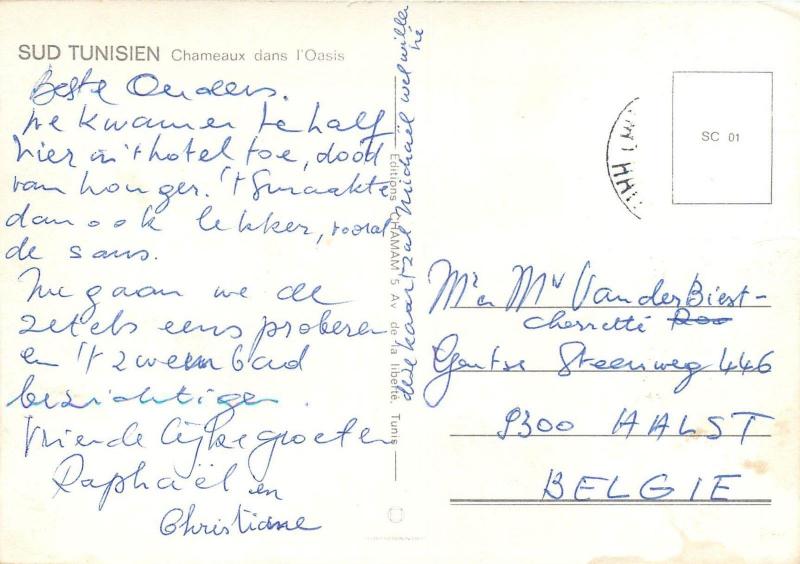 SUD TUNISIEN Chameaux dans l'Oasis
Beste Ouders.
We kwamen te half
hier in 't hotel toe, dood
van honger. 't Smaakte
dan ook lekker, vooral
de saus.
Nu gaan we de
zetels eens proberen
en 't zwembad
bezichtigen.
Vriendelijke groeten
Raphaël en
Christiane
Editions CHAMAM 5 Av de la liberté, Tunis
deze kaart zal Michaël wel willen
hé
SC 01
Mr en Mw Van der Biest-
Cherretté
Gentse Steenweg 446
9300 AALST
BELGIE